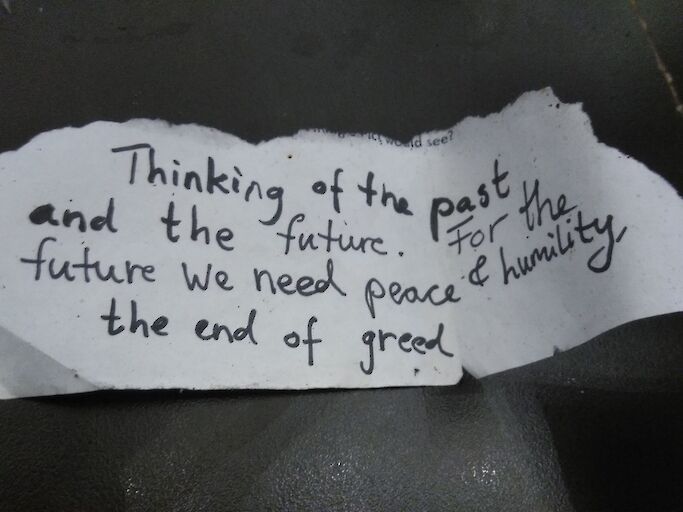 would see?
Thinking of the past
and the future. For the
future we need peace & humility,
the end of greed